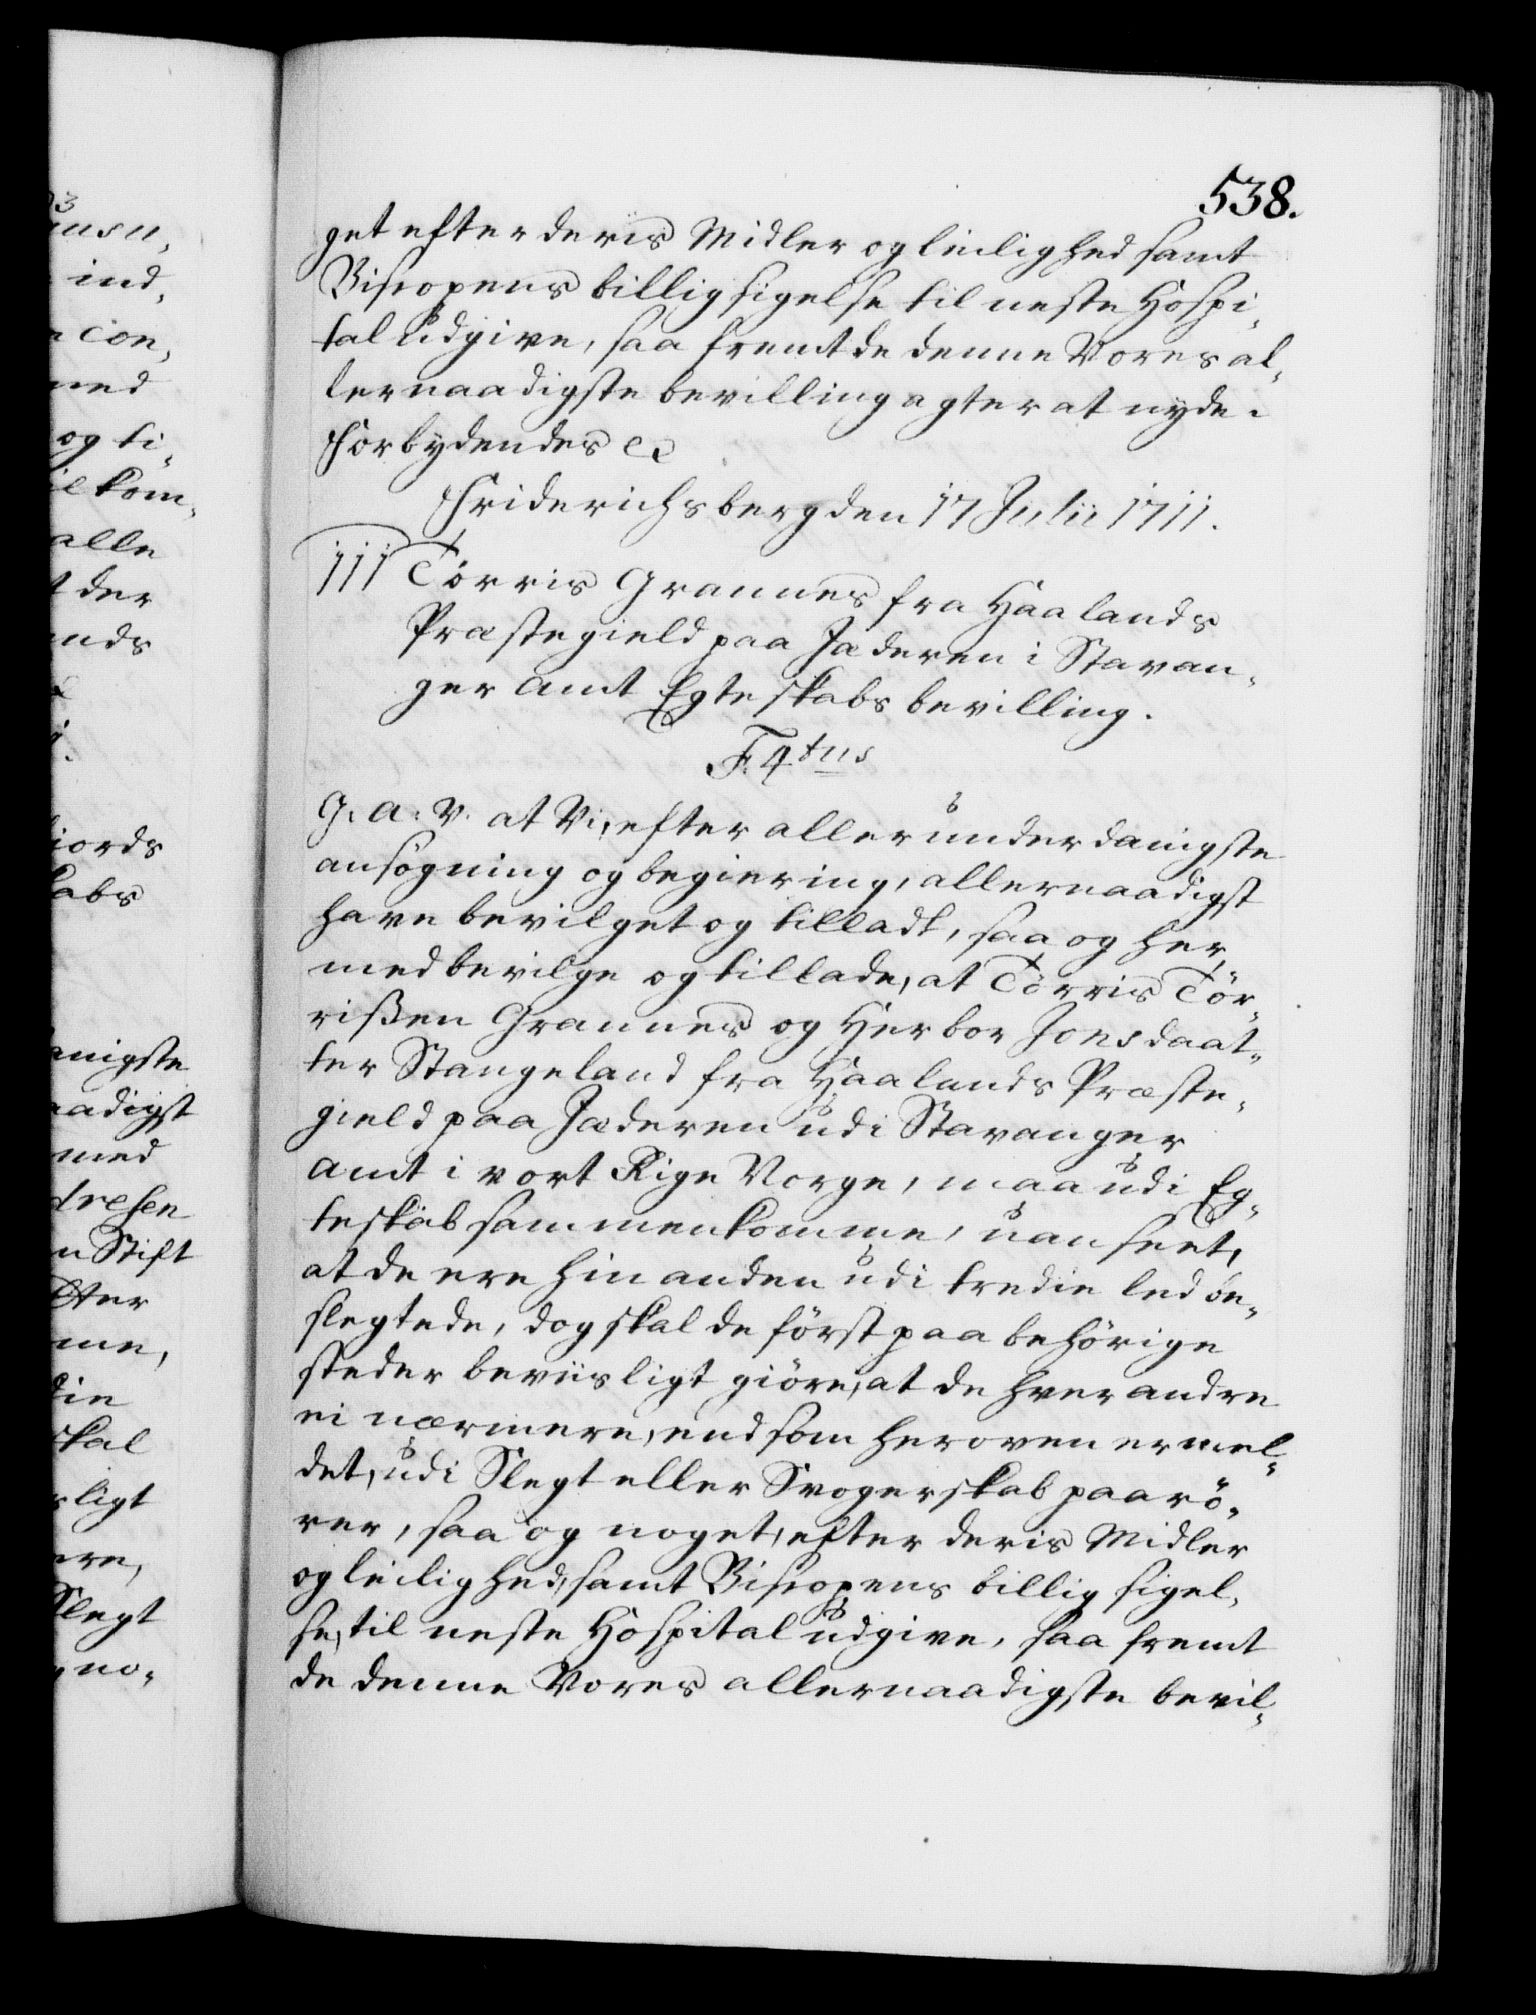 538.
get efter deris Midler og leilighed samt
Biscopens billigsigelse til neste Hospi,
tal udgive, saa fremt de denne Vores al,
lernaadigste bevilling agter at nyde.
Forbydendes etc
Friderichsberg den 17 Julii 1711.
111 Törris Grannes fra Haalands
Præstegield paa Jæderen i Stavan,
ger Amt Egteskabs bevilling.
F. 4tus
G. A. V. at Vi, efter allerunderdanigste
ansögning og begiering, allernaadigst
have bevilget og tilladt, saa og her,
med bevilge og tillade, at Törris Tör,
rißen Grannes og Herbor Jonsdaat,
ter Stangeland fra Haalands Præste,
gield paa Jæderen udi Stavanger
Amt i vort Rige Norge, maa udi Eg,
teskab sammenkomme, uanseet,
at de ere hinanden udi tredie led be,
slegtede, dog skal de först paa behörige
steder beviisligt giöre, at de hver andre
ei nærmere, end som heroven ermel,
det, udi Slegt eller Svogerskab paarö,
rer, saa og noget, efter deris Midler
og leilighed, samt Biscopens billig sigel,
se, til neste Hospital udgive, saa fremt
de denne Vores allernaadigste bevil,
ind,
con,
med
og ti,
kom,
alle
der
ands
iords
abs
anigste
aadigst
med
dresen
n Stift
tter
me,
die
skal
ligt
ere,
Slegt
no,